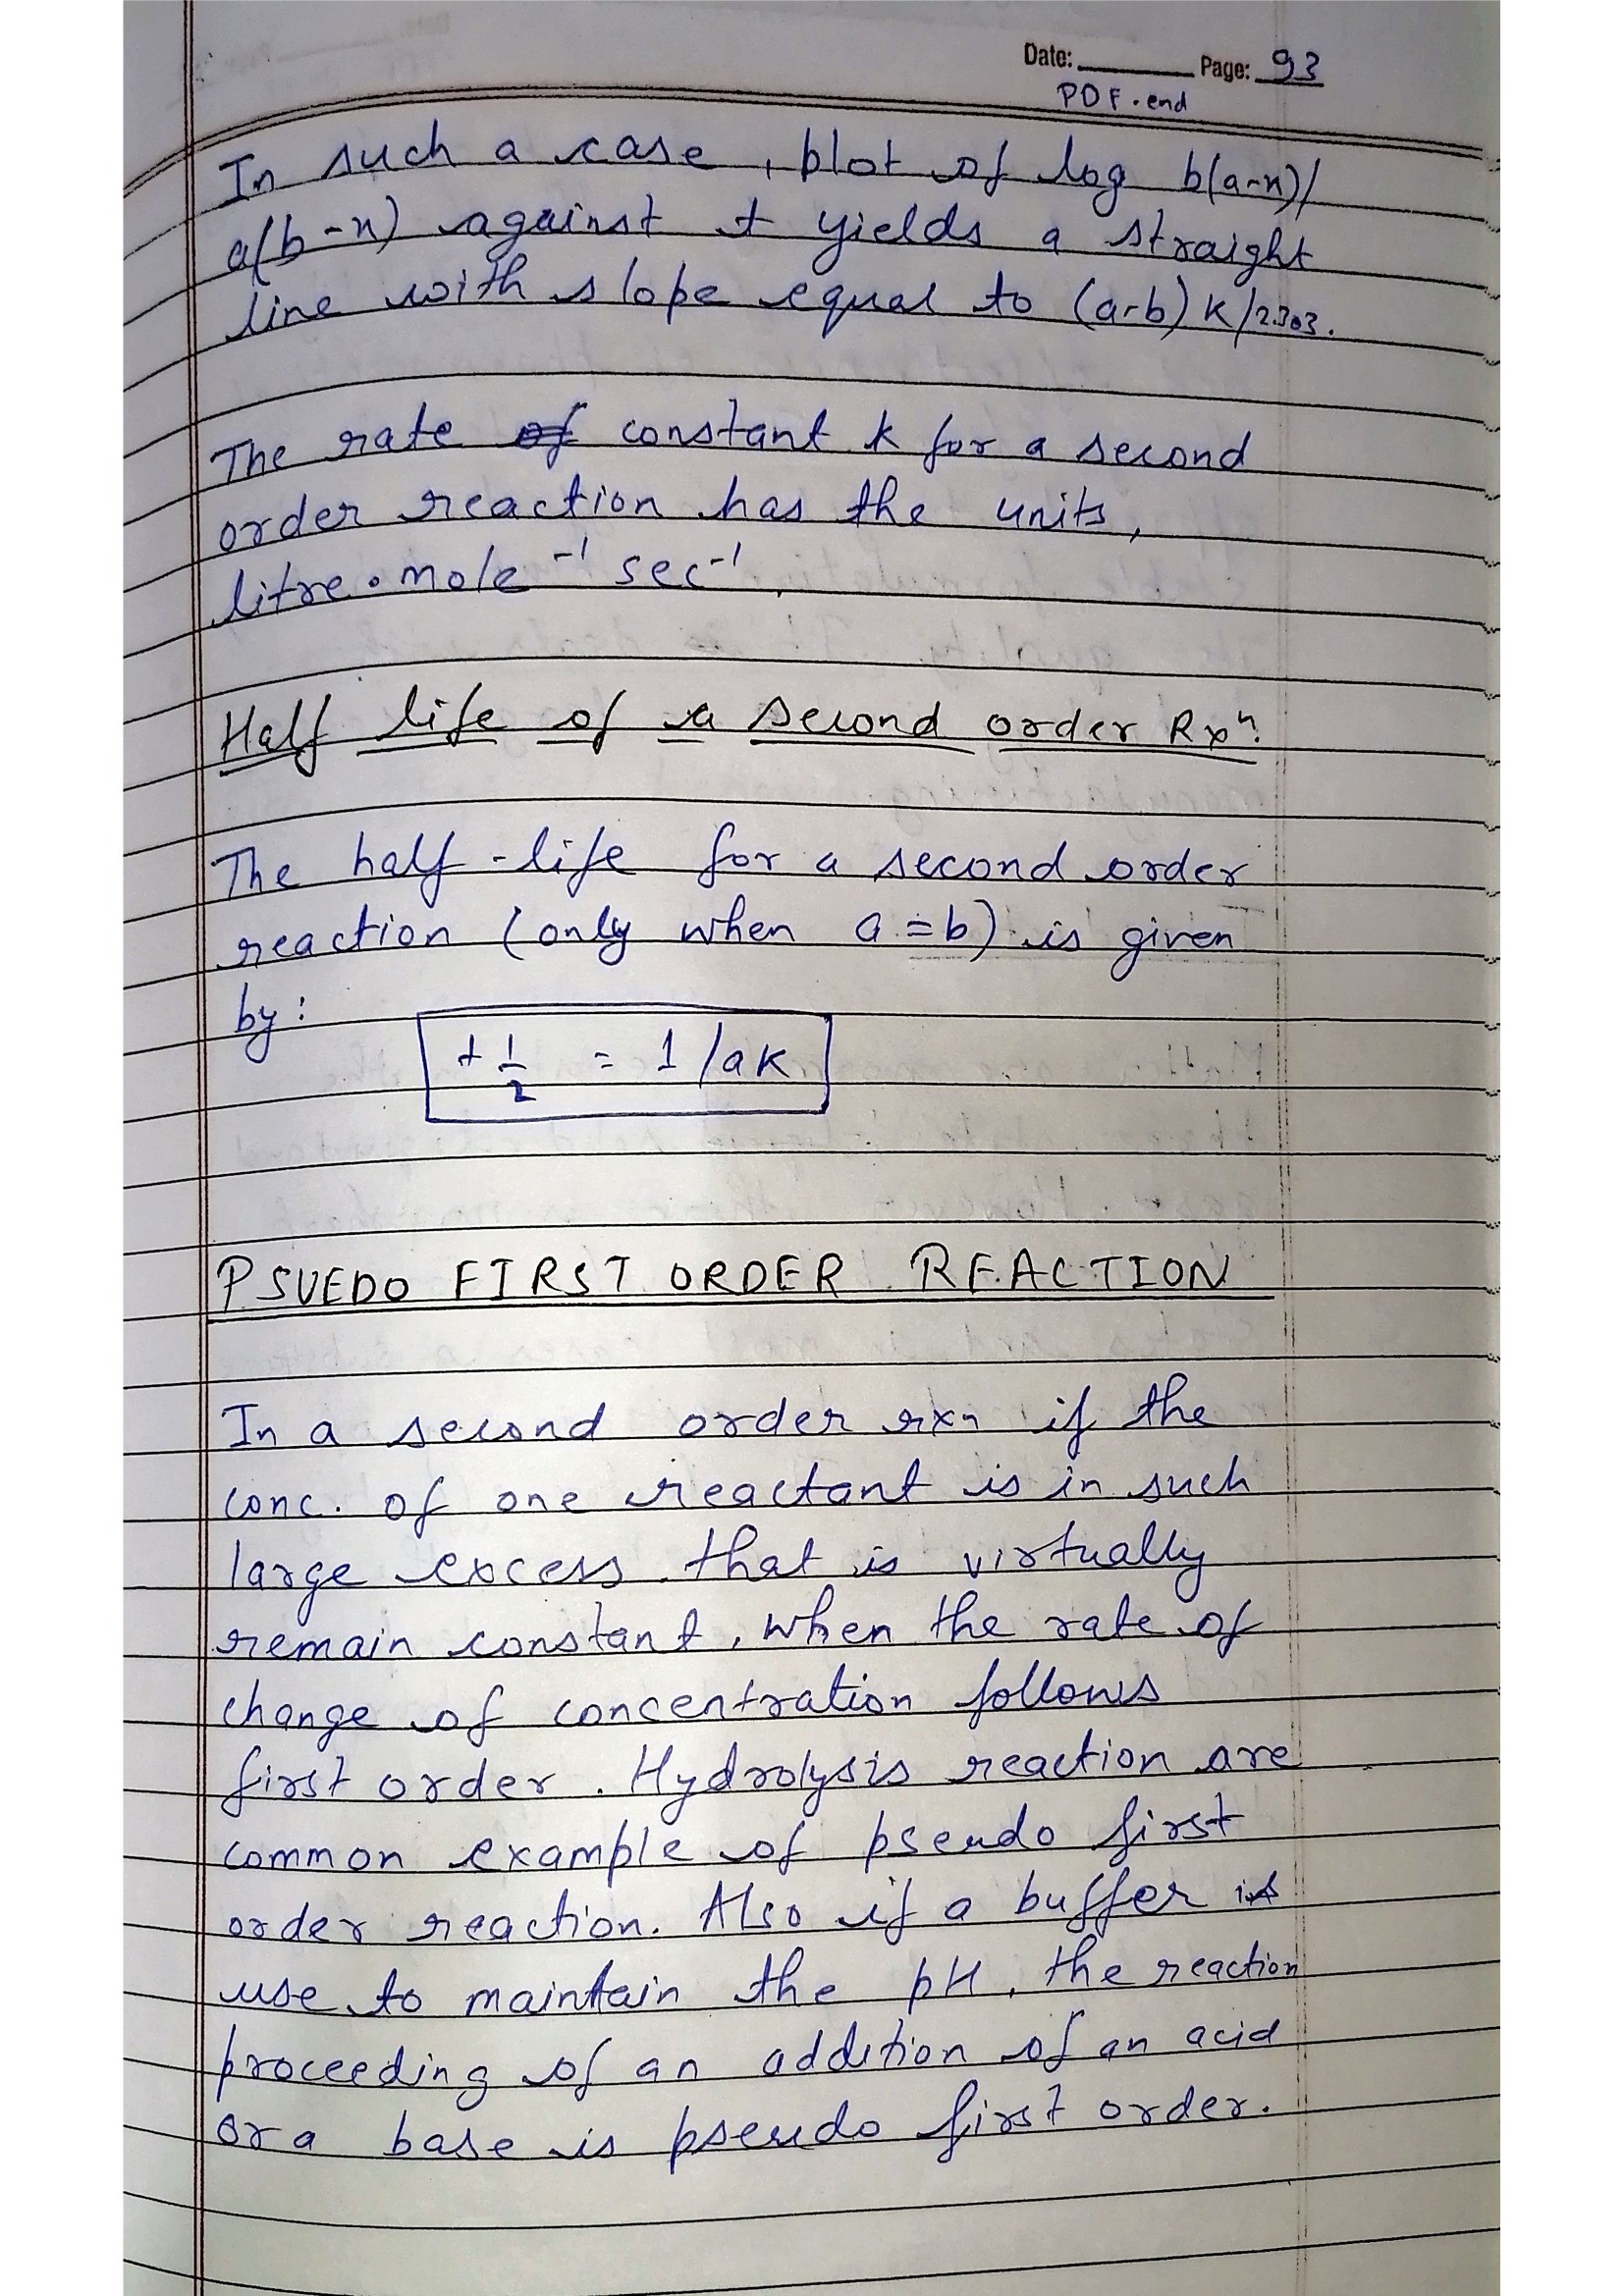 Date: Page: 93
PDF.end
In such a case, plot of log b(a-x)/
a(b-x) against t yields a straight
line with slope equal to (a-b) K/2.303.
The rate of constant k for a second
order reaction has the units,
litre. mole⁻¹ sec⁻¹.
Half life of a second order Rxⁿ.
The half-life for a second order
reaction (only when a=b) is given
by:
t 1/2 = 1/ak
PSUEDO FIRST ORDER REACTION
In a second order rxn if the
conc. of one reactant is in such
large excess that is virtually
remain constant, when the rate of
change of concentration follows
first order. Hydrolysis reaction are
common example of pseudo first
order reaction. Also if a buffer is
use to maintain the pH, the reaction
proceeding of an addition of an acid
or a base is pseudo first order.